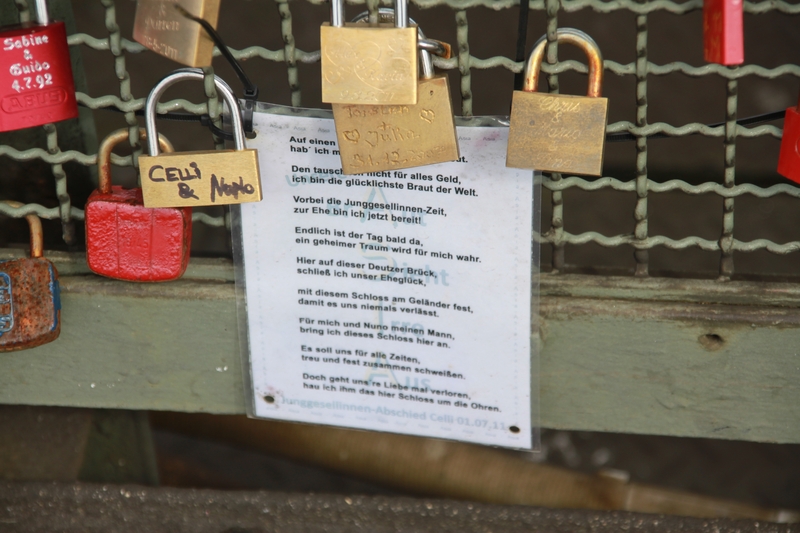 Sabine
&
Guido
4.7.92
ABUS
CELLi
& NoNo
Torsten
Auf einen
hab' ich
Den nicht für alles Geld,
ich bin die glücklichste Braut der Welt.
Vorbei die Junggesellinnen-Zeit,
zur Ehe bin ich jetzt bereit!
Endlich ist der Tag bald da,
ein geheimer Traum wird für mich wahr.
Hier auf dieser Deutzer Brück,
schließ ich unser Eheglück,
mit diesem Schloss am Geländer fest,
damit es uns niemals verlässt.
Für mich und Nuno meinen Mann,
bring ich dieses Schloss hier an.
Es soll uns für alle Zeiten,
treu und fest zusammen schweißen.
Doch geht uns're Liebe mal verloren,
hau ich ihm das hier Schloss um die Ohren.
Junggesellinnen-Abschied Celli 01.07.11